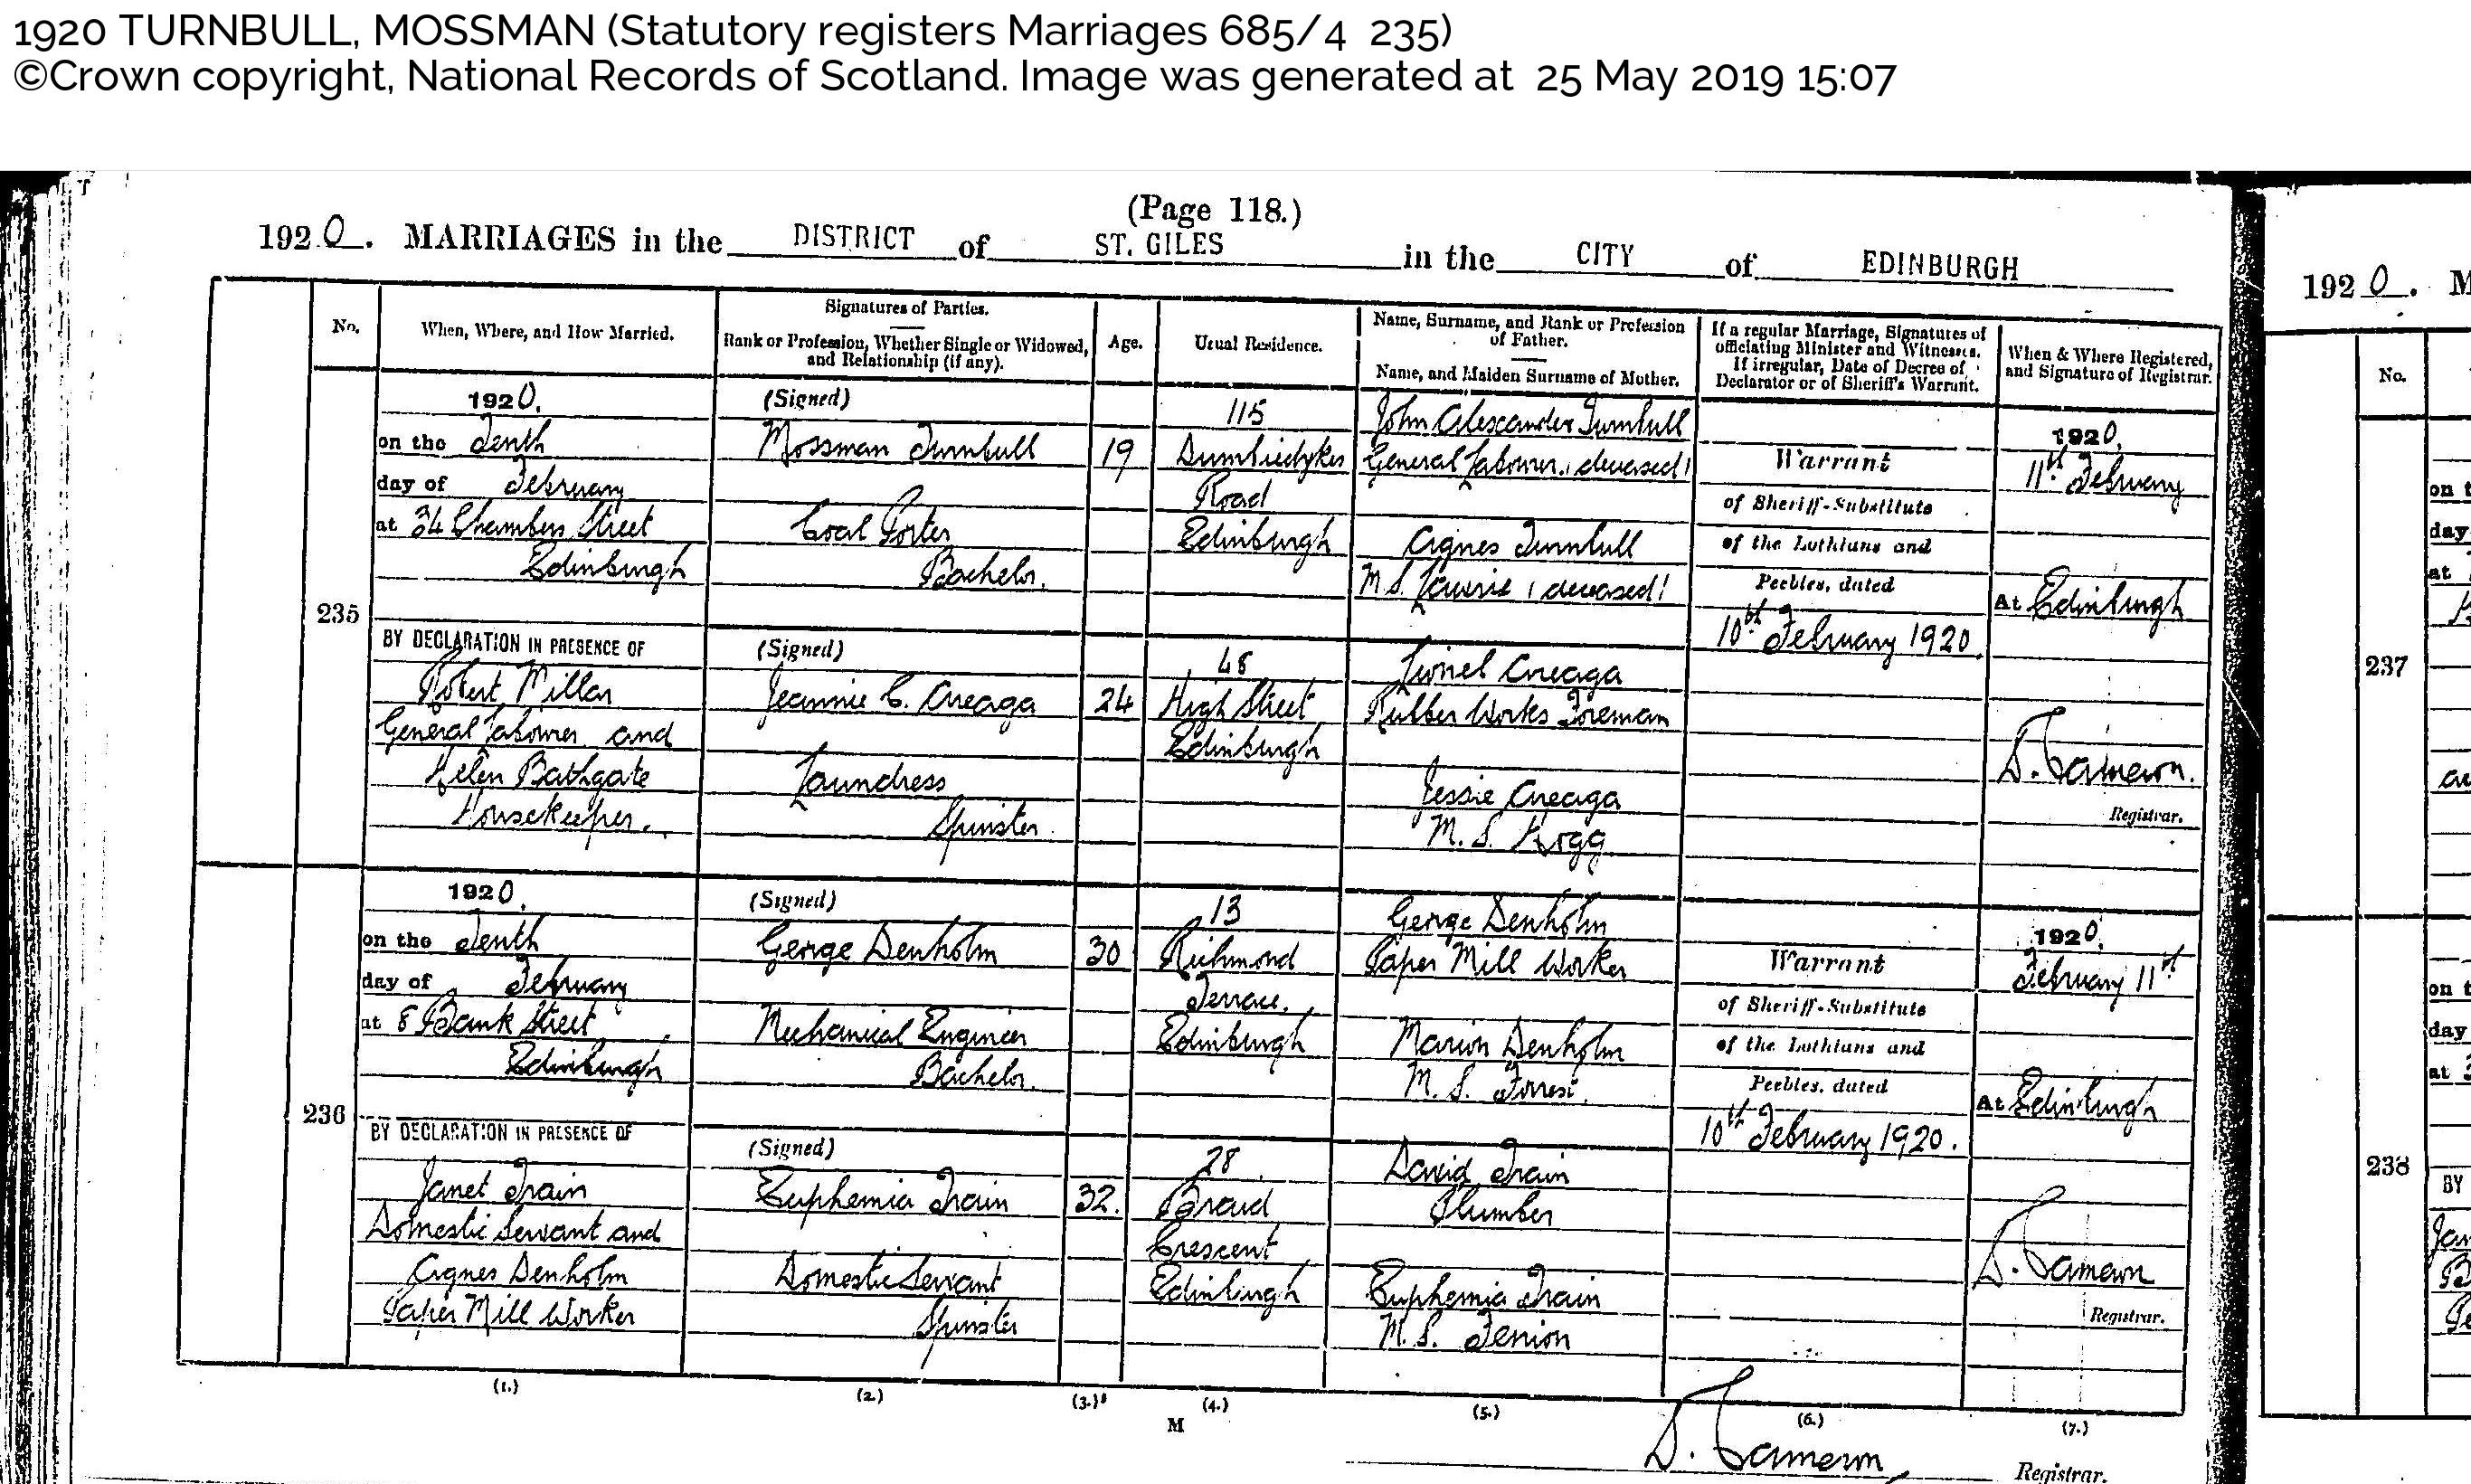 1920 TURNBULL, MOSSMAN (Statutory registers Marriages 685/4 235)
©Crown copyright, National Records of Scotland. Image was generated at 25 May 2019 15:07
(Page 118.)
1920. MARRIAGES in the DISTRICT of ST. GILES in the CITY of EDINBURGH
No.
When, Where, and How Married.
Signatures of Parties.
Rank or Profession, Whether Single or Widowed,
and Relationship (if any).
Age.
Usual Residence.
Name, Surname, and Rank or Profession
of Father.
Name, and Maiden Surname of Mother.
If a regular Marriage, Signatures of
officiating Minister and Witnesses.
If irregular, Date of Decree of
Declarator or of Sheriff's Warrant.
When & Where Registered,
and Signature of Registrar.
235
1920.
on the Tenth
day of February
at 34 Chambers Street
Edinburgh
BY DECLARATION IN PRESENCE OF
Robert Millar
General Labourer and
Helen Bathgate
Housekeeper.
(Signed)
Mossman Turnbull
Coal Porter
Bachelor.
(Signed)
Jeannie C. Creaga
Laundress
Spinster
19
24
115
Dumbiedykes
Road
Edinburgh
48
High Street
Edinburgh
John Alexander Turnbull
General Labourer (deceased)
Agnes Turnbull
M.S. Lawrie (deceased)
Lionel Creaga
Rubber Works Foreman
Jessie Creaga
M.S. Hogg
Warrant
of Sheriff-Substitute
of the Lothians and
Peebles, dated
10th February 1920.
1920.
11th February
At Edinburgh
D. Cameron.
Registrar.
236
1920.
on the Tenth
day of February
at 8 Bank Street
Edinburgh
BY DECLARATION IN PRESENCE OF
Janet Train
Domestic Servant and
Agnes Denholm
Paper Mill Worker
(Signed)
George Denholm
Mechanical Engineer
Bachelor.
(Signed)
Euphemia Train
Domestic Servant
Spinster
30
32.
13
Richmond
Terrace.
Edinburgh
28
Braid
Crescent
Edinburgh
George Denholm
Paper Mill Worker
Marion Denholm
M.S. Forrest.
David Train
Plumber
Euphemia Train
M.S. Fenion
Warrant
of Sheriff-Substitute
of the Lothians and
Peebles, dated
10th February 1920.
1920.
February 11th
At Edinburgh
D. Cameron
Registrar.
(1.) (2.) (3.) (4.) (5.) (6.) (7.)
M
D. Cameron
Registrar.
1920. M
No.
237
on t
day
at
238
on t
day
at
BY